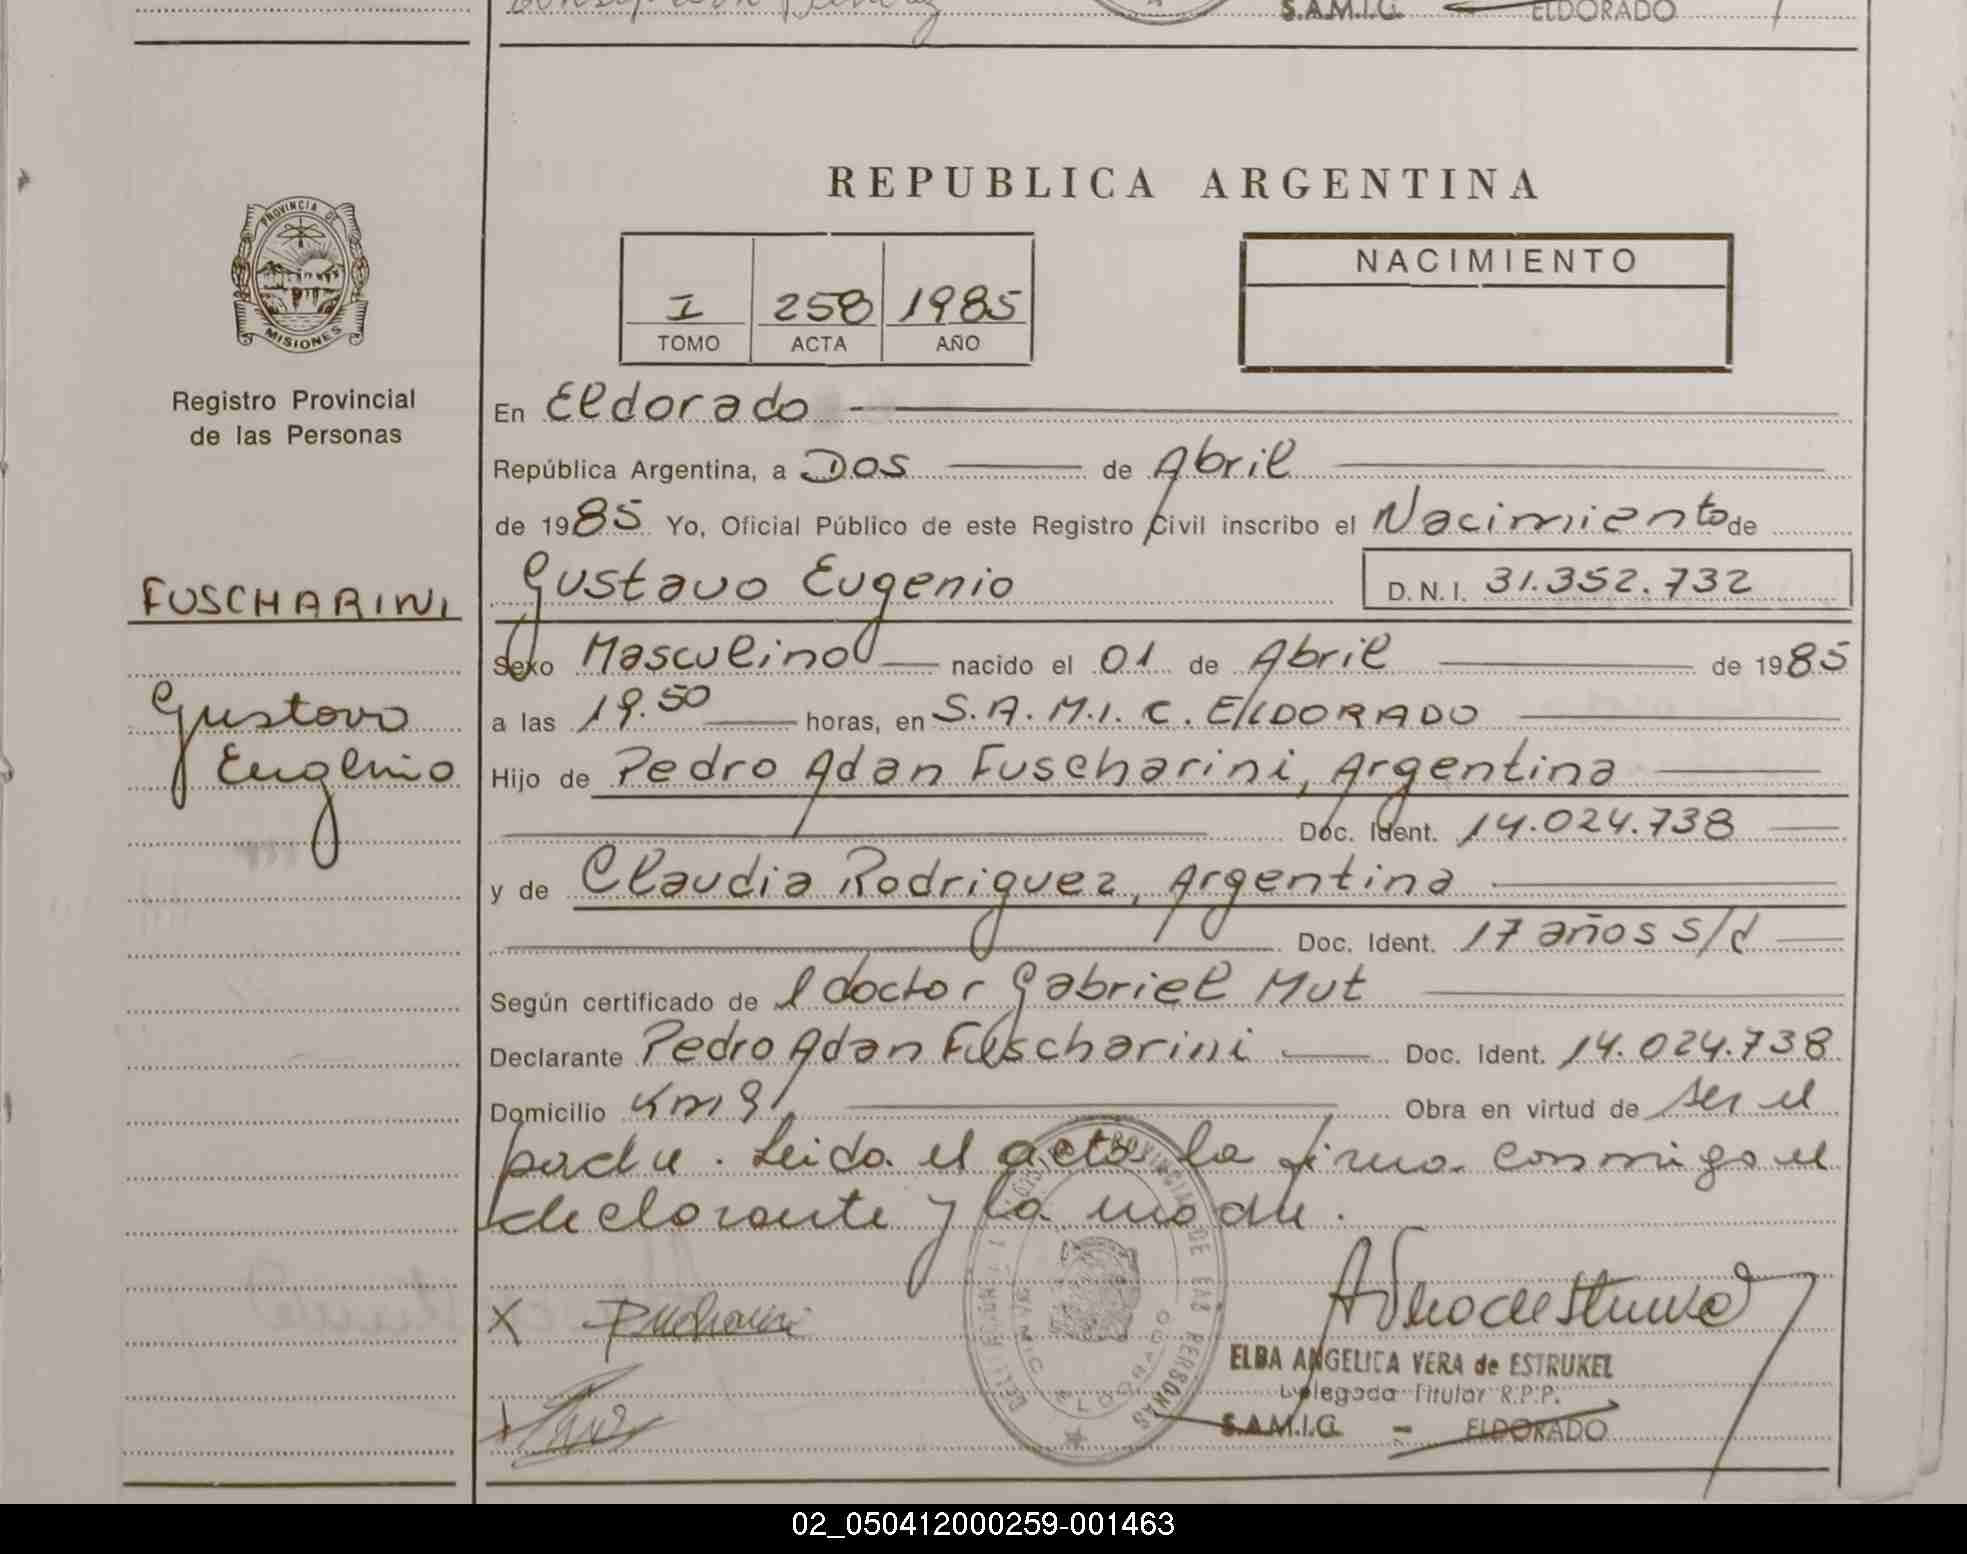 S.A.M.I.C. ELDORADO
REPUBLICA ARGENTINA
PROVINCIA DE
MISIONES
NACIMIENTO
I 258 1985
TOMO ACTA AÑO
Registro Provincial
de las Personas
En Eldorado
República Argentina, a Dos de Abril
de 1985 Yo, Oficial Público de este Registro Civil inscribo el Nacimiento de
FUSCHARINI
Gustavo Eugenio D.N.I. 31.352.732
Sexo Masculino nacido el 01 de Abril de 1985
Gustavo
Eugenio
a las 19.50 horas, en S.A.M.I.C. ELDORADO
Hijo de Pedro Adan Fuscharini, Argentina
Doc. Ident. 14.024.738
y de Claudia Rodriguez, Argentina
Doc. Ident. 17 años s/d
Según certificado de l doctor Gabriel Mut
Declarante Pedro Adan Fuscharini Doc. Ident. 14.024.738
Domicilio Km 9 Obra en virtud de ser el
padre. Leida el acta la firma conmigo el
declarante y la madre.
X
ELBA ANGELICA VERA de ESTRUKEL
Delegada Titular R.P.P.
S.A.M.I.C. - ELDORADO
02_050412000259-001463